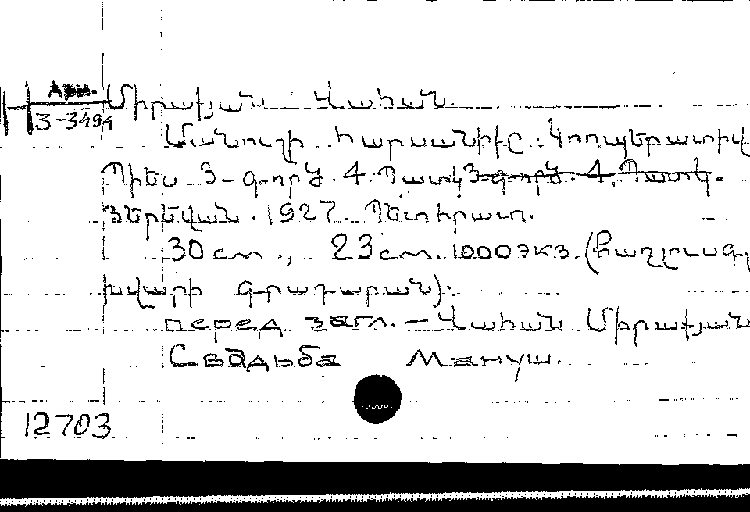 Арм.
3-3494
Միրաքյան Վահան.
Մանուշի հարսանիքը. Կոոպերատիվ
Պիես 3-գործ. 4. Պատկ.
Յերեվան. 1927. Պետհրատ.
30 cm., 23 cm. 1000 экз. (Բաղրամ գյ
խվարի գրադարան).
перед загл. - Վահան Միրաքյան
Свадьба Мануш.
12703